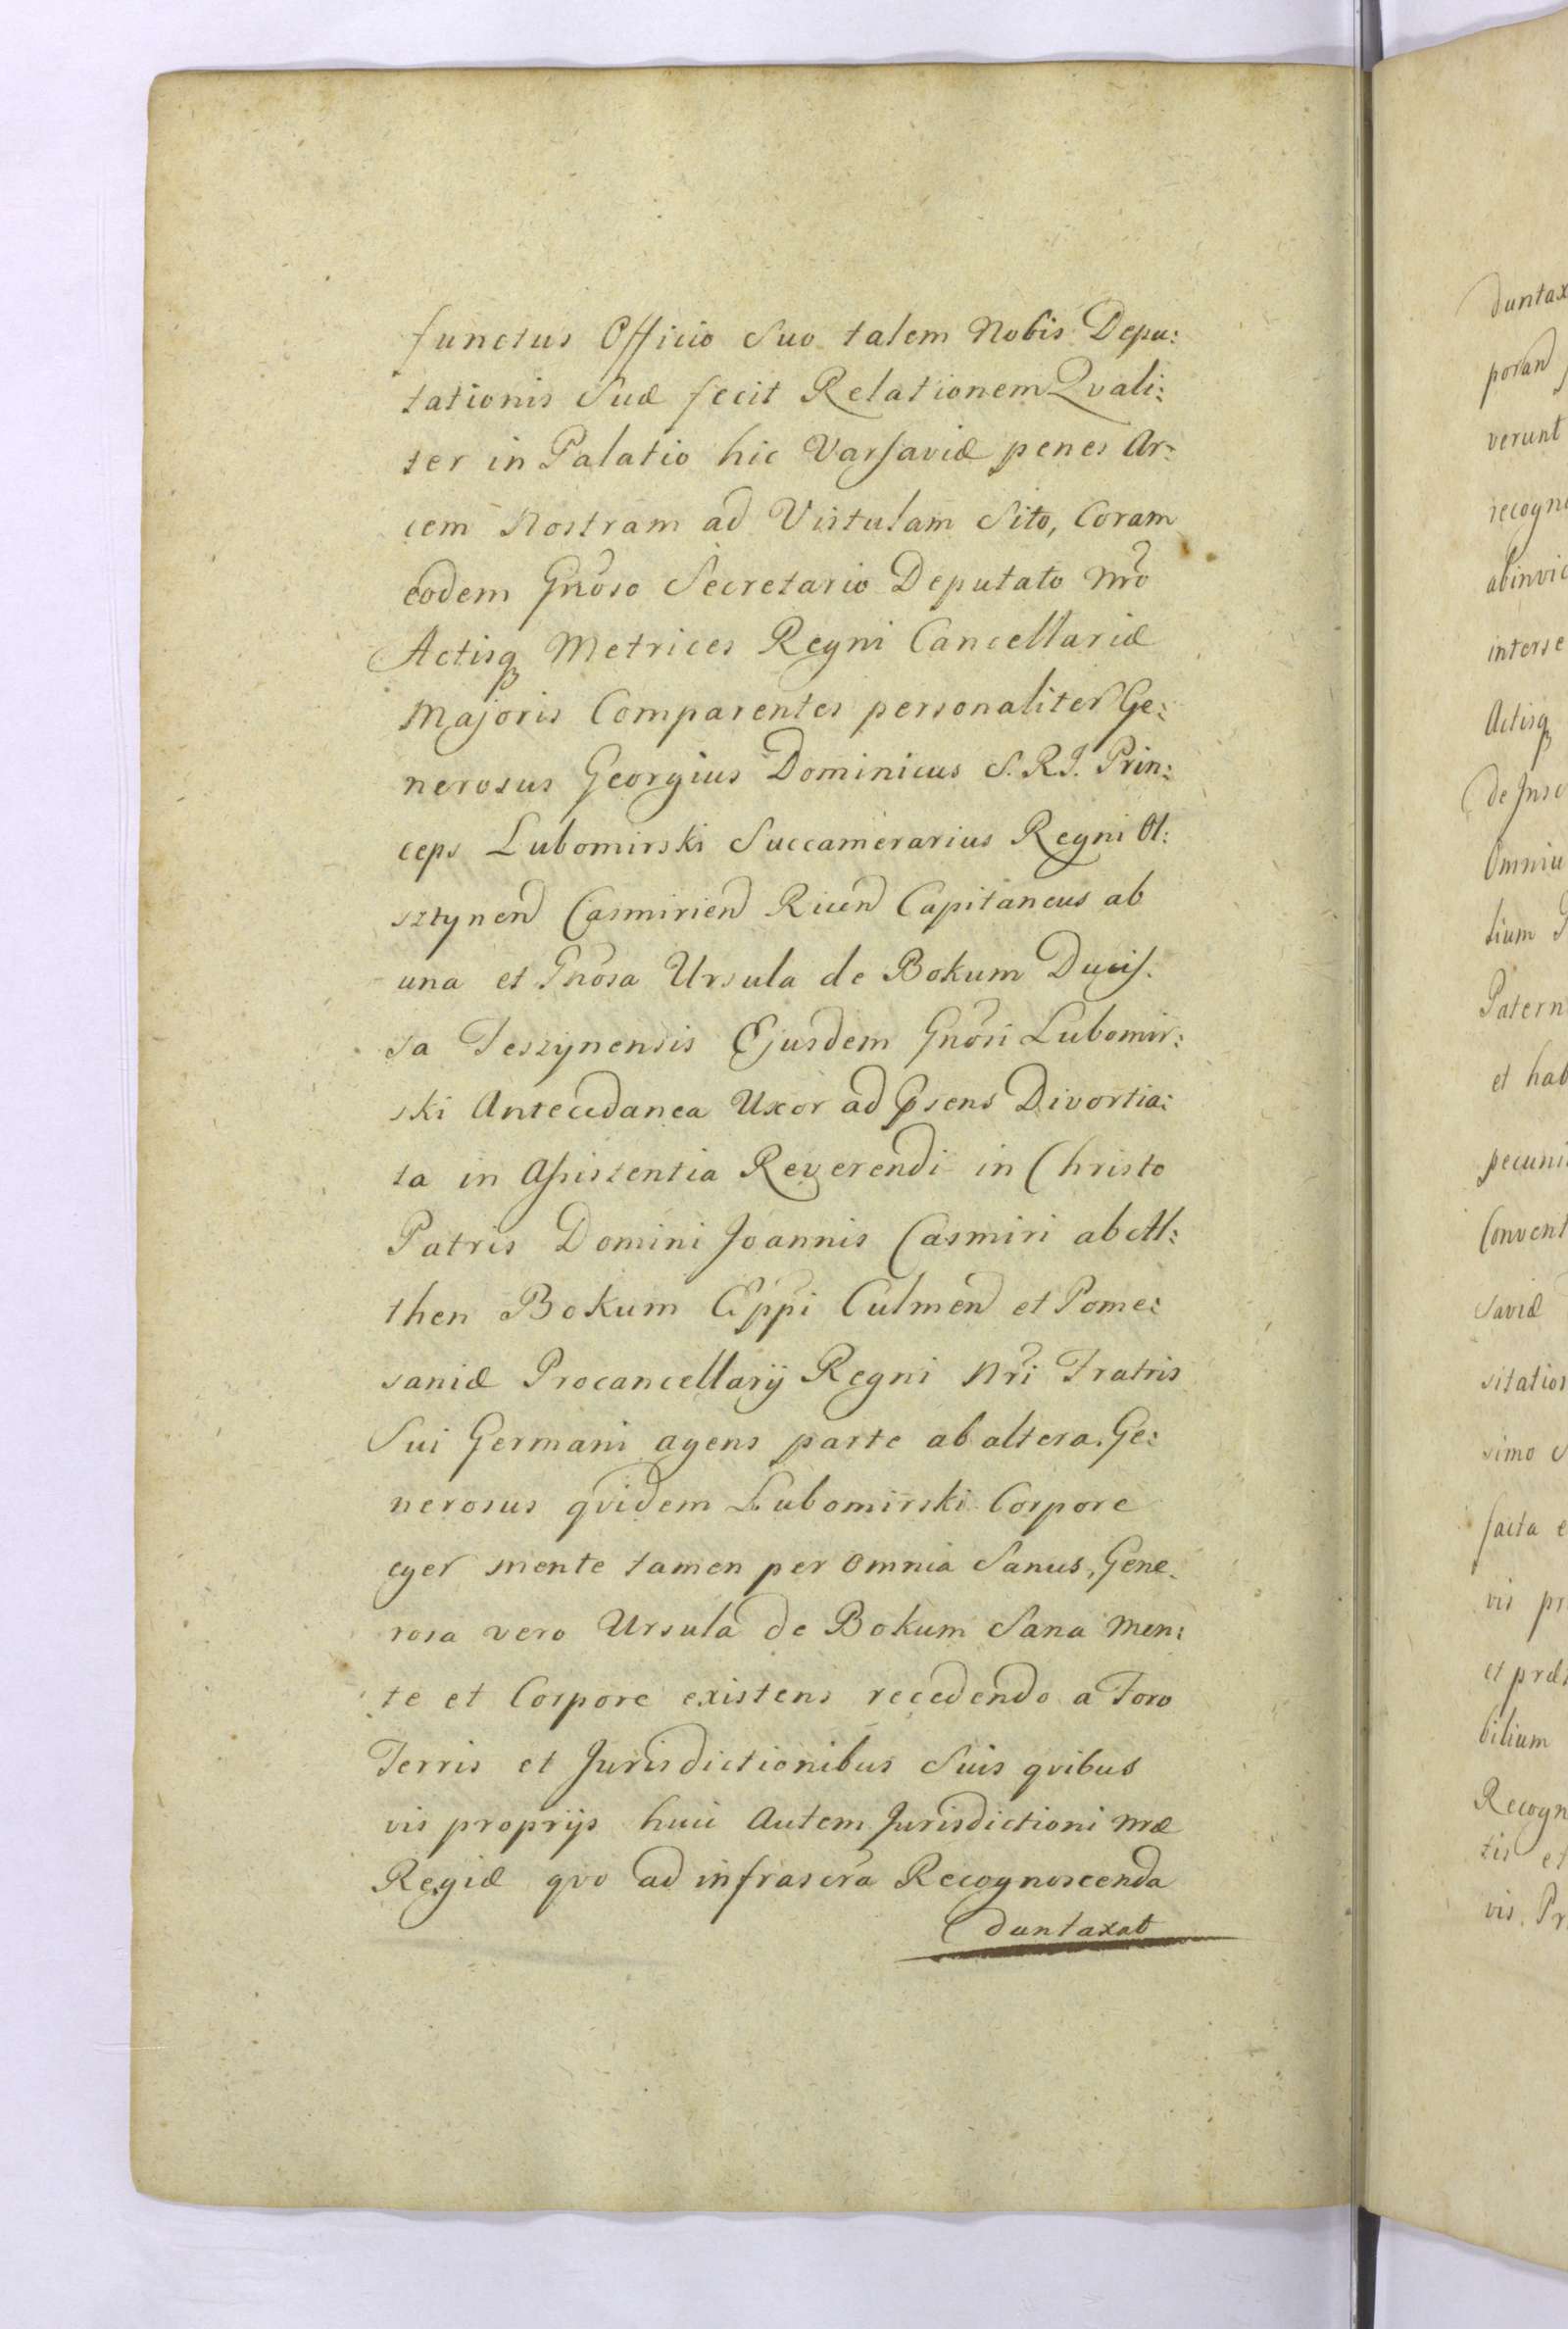 functus Officio Suo talem Nobis Depu:
tationis Suæ fecit Relationem Qvali:
ter in Palatio hic Varsaviæ penes Ar:
cem Nostram ad Vistulam Sito, Coram
eodem Gnõso Secretario Deputato Nrõ
Actisq Metrices Regni Cancellariæ
Majoris Comparentes personaliter Ge:
nerosus Georgius Dominicus S. R. I. Prin:
ceps Lubomirski Succamerarius Regni Ol:
sztynen Casmirien Ricen Capitaneus ab
una et Gnõsa Ursula de Bokum Ducis:
sa Teszynensis Ejusdem Gnõsi Lubomir:
ski Antecedanea Uxor ad Psens Divortia:
ta in Assistentia Reverendi in Christo
Patris Domini Joannis Casmiri ab Al:
then Bokum Eppi Culmen et Pome:
saniæ Procancellarij Regni Nri Fratris
Sui Germani agens parte ab altera. Ge:
nerosus qvidem Lubomirski Corpore
eger mente tamen per omnia Sanus, Gene:
rosa vero Ursula de Bokum Sana Men:
te et Corpore existens recedendo a Foro
Terris et Jurisdictionibus Suis qvibus
vis proprijs huic Autem Jurisdictioni Nræ
Regiæ qvo ad infrascra Recognoscenda
duntaxat
duntax
poran
verunt
recogno
abinvic
interse
Actisq
de Insc
Omniu
tium
Patern
et hab
pecuni
Convent
saviæ
sitation
simo
facta e
vis pr
et præs
bilium
Recogn
tis et
vis. Pr